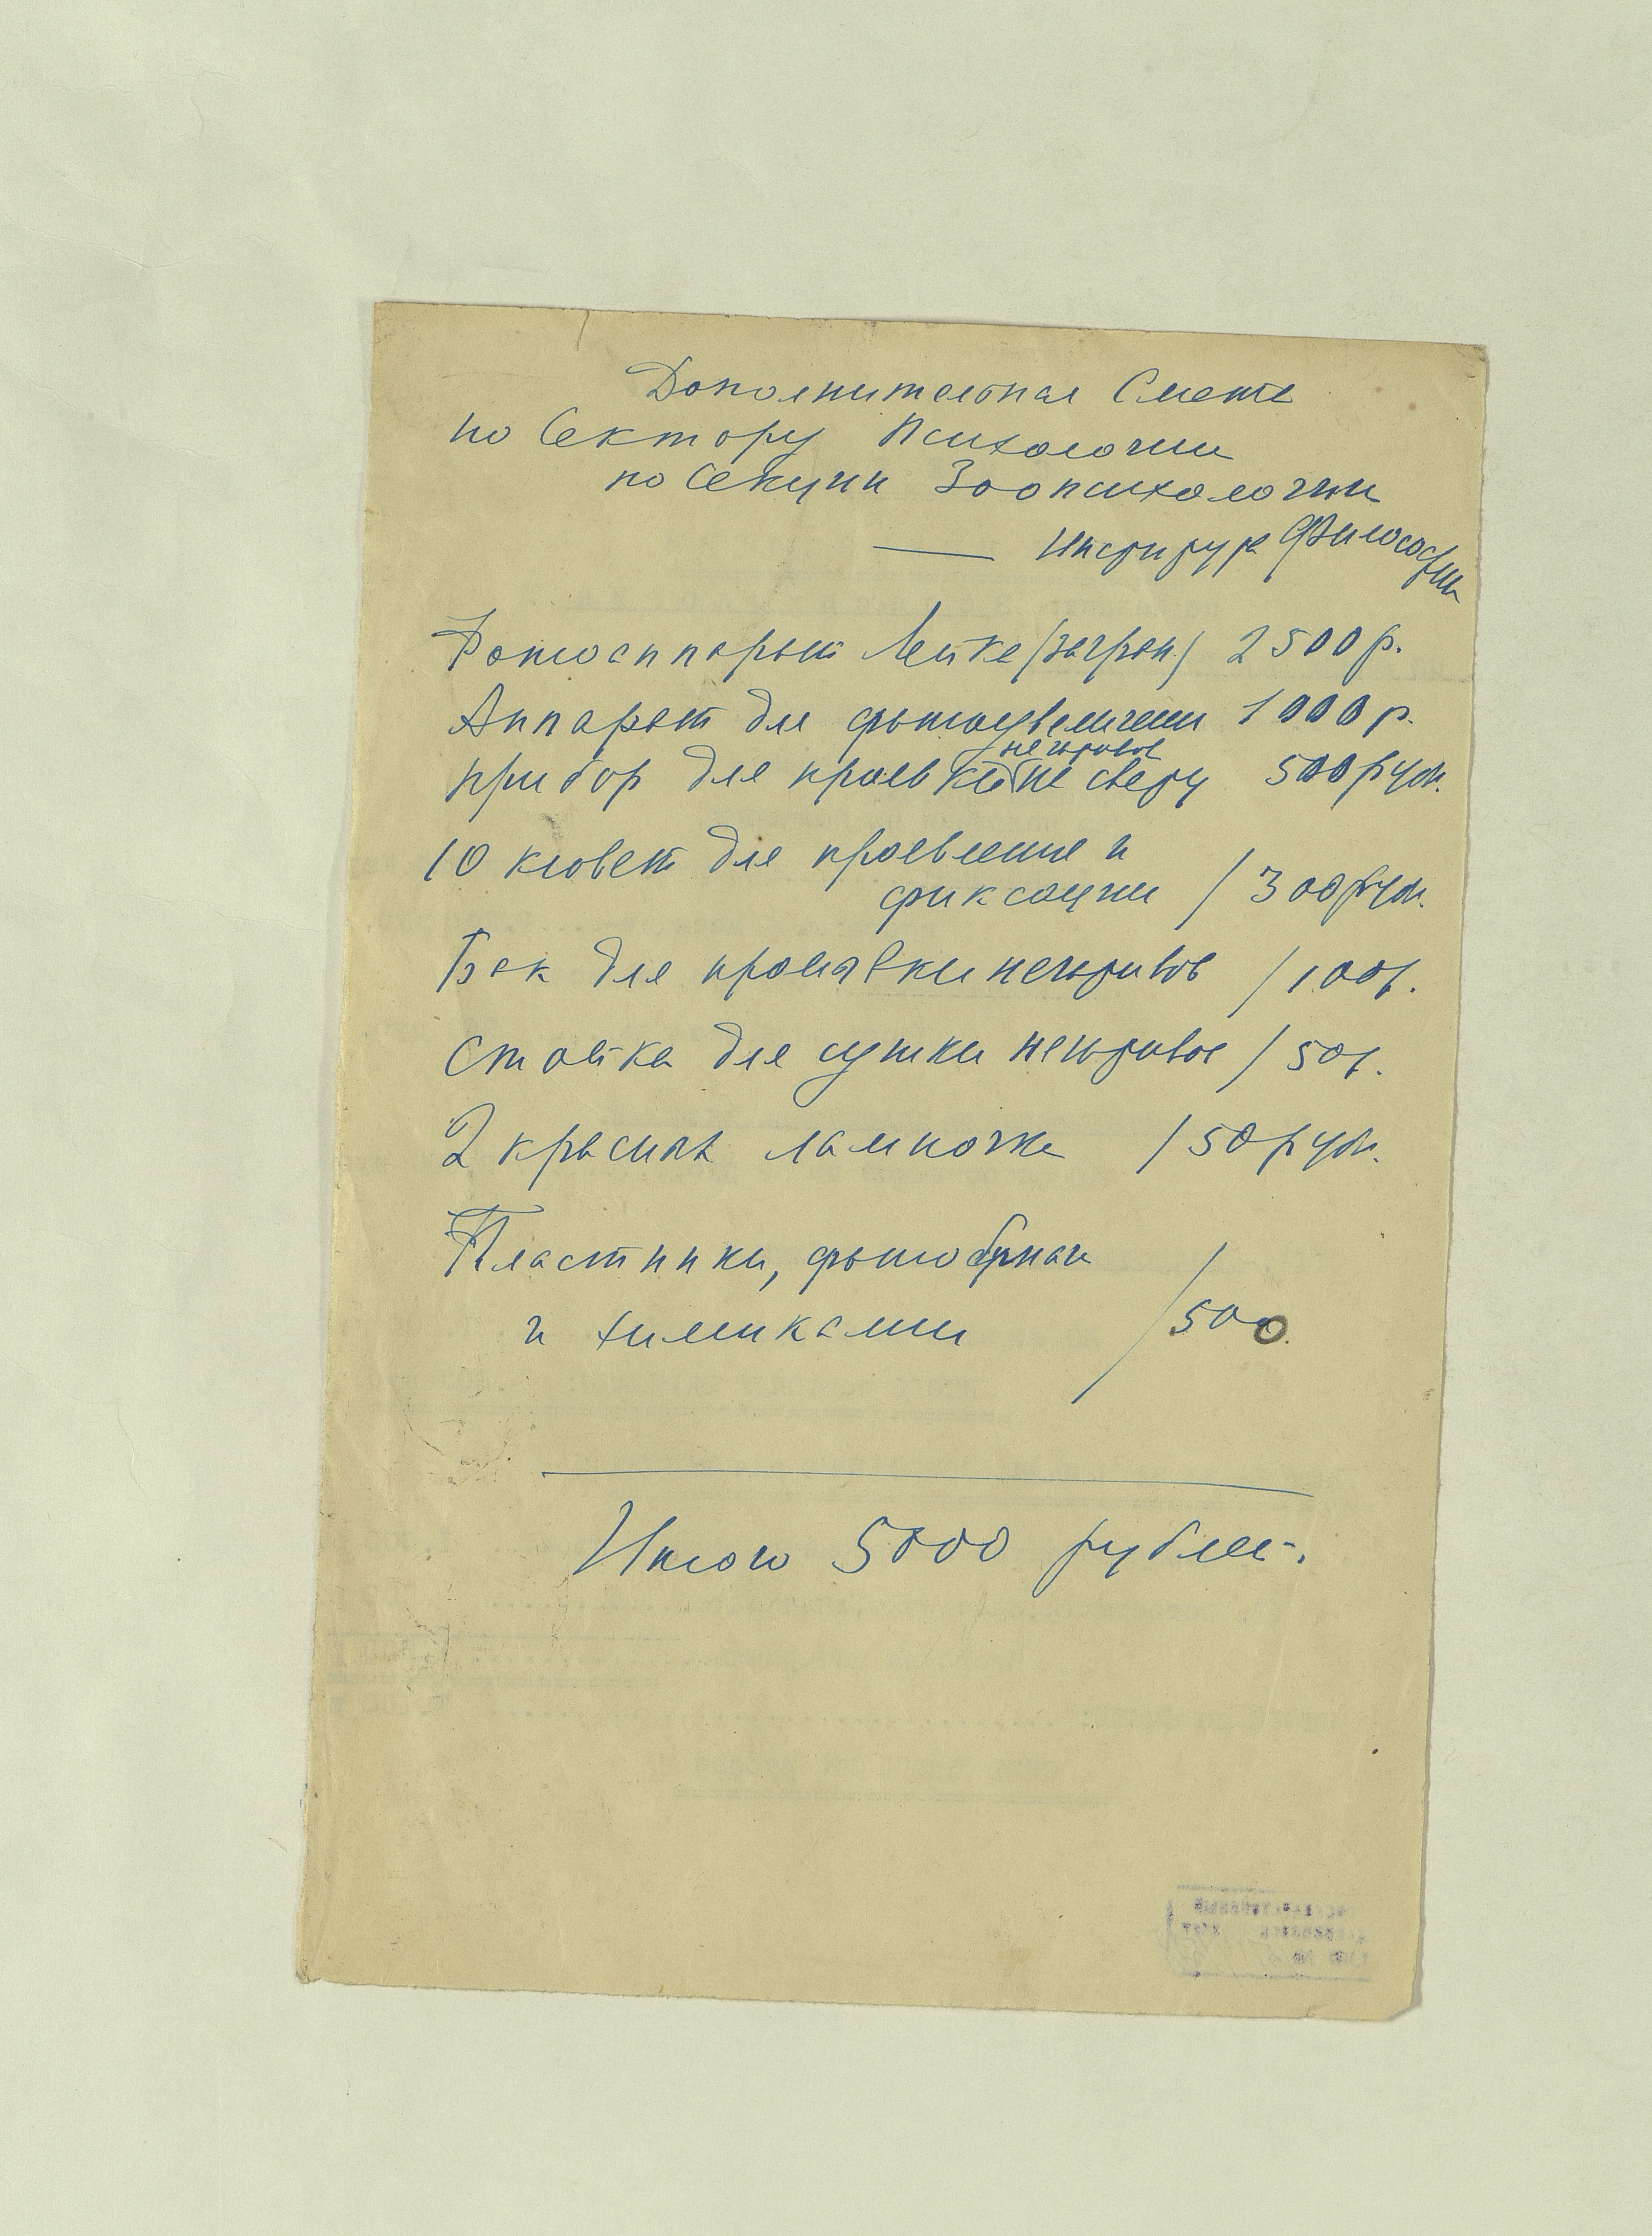 Дополнительная Смета
по Сектору Психологии
по Секции Зоопсихологии
— Института Философии
Фотоаппарат Лейка (загран.) 2500 р.
Аппарат для фотоувеличения 1000 р.
негативов
прибор для проявки на свету 500 руб.
10 кювет для проявления и
фиксации / 300 руб.
Бак для промывки негативов / 100 р.
Стойка для сушки негативов / 50 р.
2 красных лампочки / 50 руб.
Пластинки, фотобумаги
и химикалии / 500.
Итого 5000 рублей.